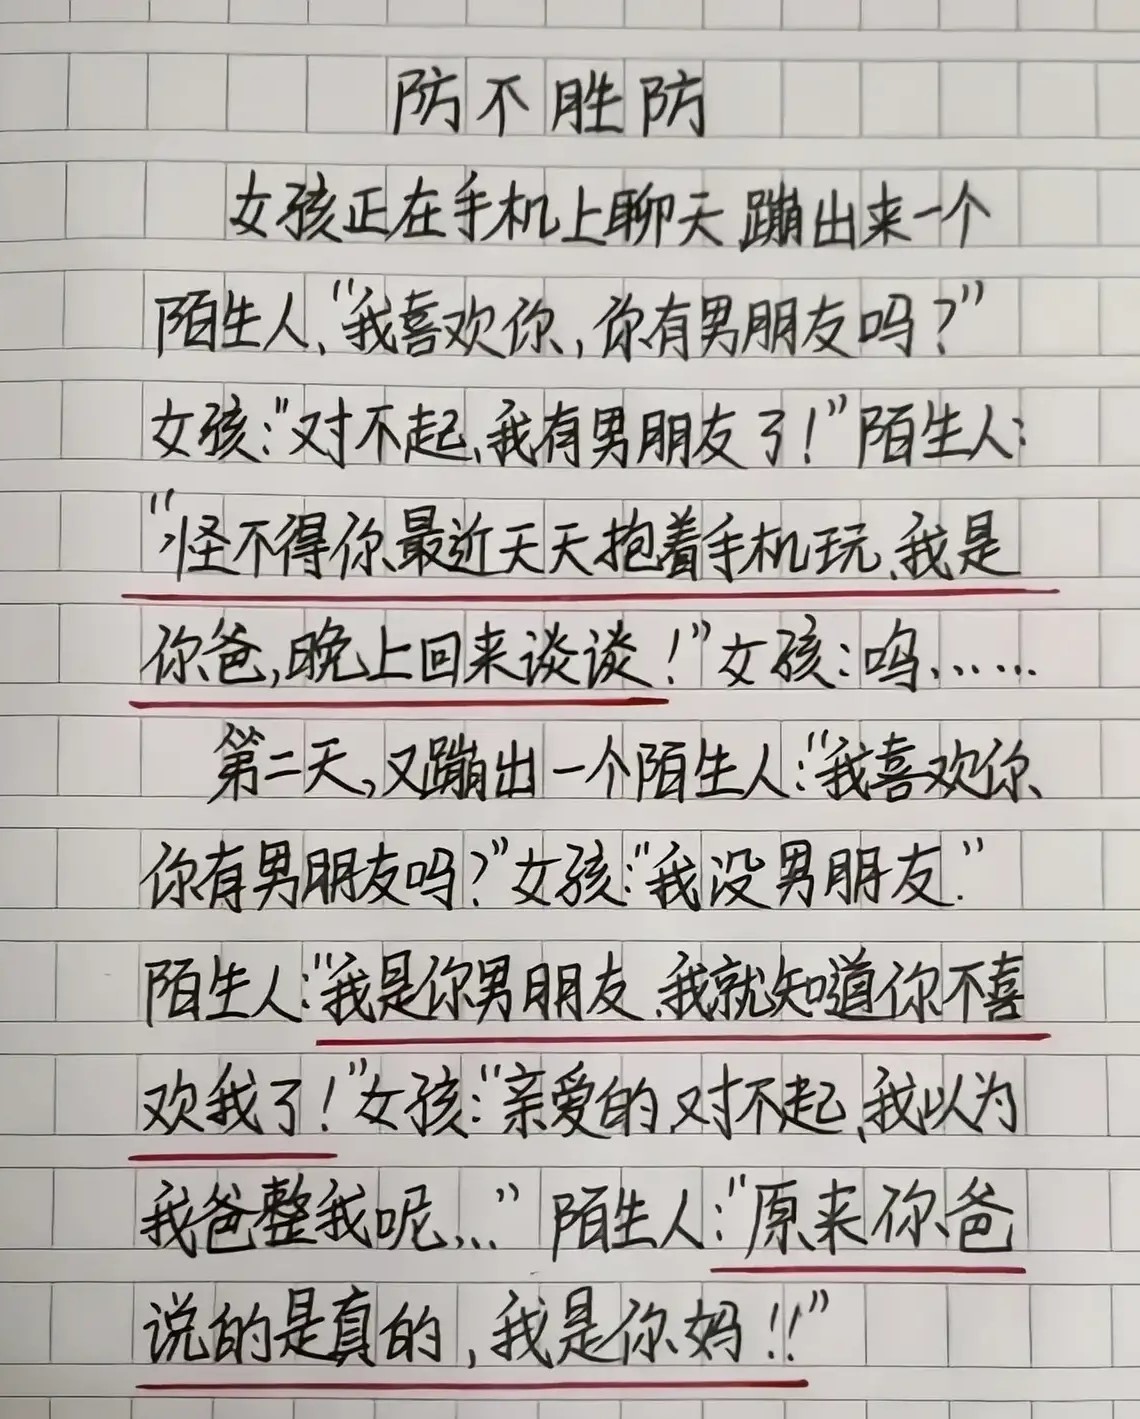 防不胜防
女孩正在手机上聊天蹦出来一个
陌生人、“我喜欢你,你有男朋友吗?”
女孩:“对不起、我有男朋友了!”陌生人:
“怪不得你最近天天抱着手机玩、我是
你爸,晚上回来谈谈!”女孩:呜……
第二天,又蹦出一个陌生人:“我喜欢你、
你有男朋友吗?”女孩:“我没男朋友.”
陌生人:“我是你男朋友、我就知道你不喜
欢我了!”女孩:“亲爱的,对不起,我以为
我爸整我呢...”陌生人:“原来你爸
说的是真的,我是你妈!!”